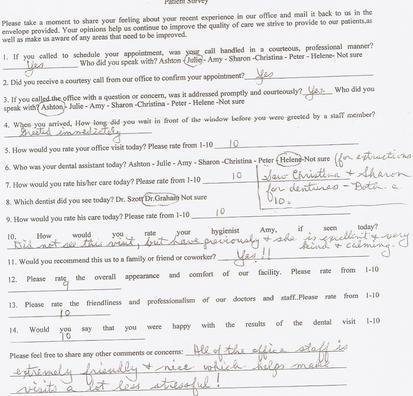 Patient Survey
Please take a moment to share your feeling about your recent experience in our office and mail it back to us in the
envelope provided. Your opinions help us continue to improve the quality of care we strive to provide to our patients,as
well as make us aware of any areas that need to be improved.
1. If you called to schedule appointment, was your call handled in a courteous, professional manner?
Yes Who did you speak with? Ashton - Julie - Amy - Sharon -Christina - Peter - Helene- Not sure
2. Did you receive a courtesy call from our office to confirm your appointment? Yes
3. If you called the office with a question or concern, was it addressed promptly and courteously? Yes Who did you
speak with? Ashton - Julie - Amy - Sharon -Christina - Peter - Helene -Not sure
4. When you arrived, How long did you wait in front of the window before you were greeted by a staff member?
Greeted immediately
5. How would you rate your office visit today? Please rate from 1-10 10
6. Who was your dental assistant today? Ashton - Julie - Amy - Sharon -Christina - Peter - Helene-Not sure (for extractions
7. How would you rate his/her care today? Please rate from 1-10 10 Saw Christina & Sharon
for dentures - Both a
10.
8. Which dentist did you see today? Dr. Szott Dr.Graham Not sure
9. How would you rate his care today? Please rate from 1-10 10
10. How would you rate your hygienist Amy, if seen today?
Did not see this visit, but have previously & she is excellent & very
kind & calming.
11. Would you recommend this us to a family or friend or coworker? Yes!!
12. Please rate the overall appearance and comfort of our facility. Please rate from 1-10
9
13. Please rate the friendliness and professionalism of our doctors and staff.Please rate from 1-10
10
14. Would you say that you were happy with the results of the dental visit 1-10
10
Please feel free to share any other comments or concerns: All of the office staff is
extremely friendly & nice which helps make
visits a lot less stressful!